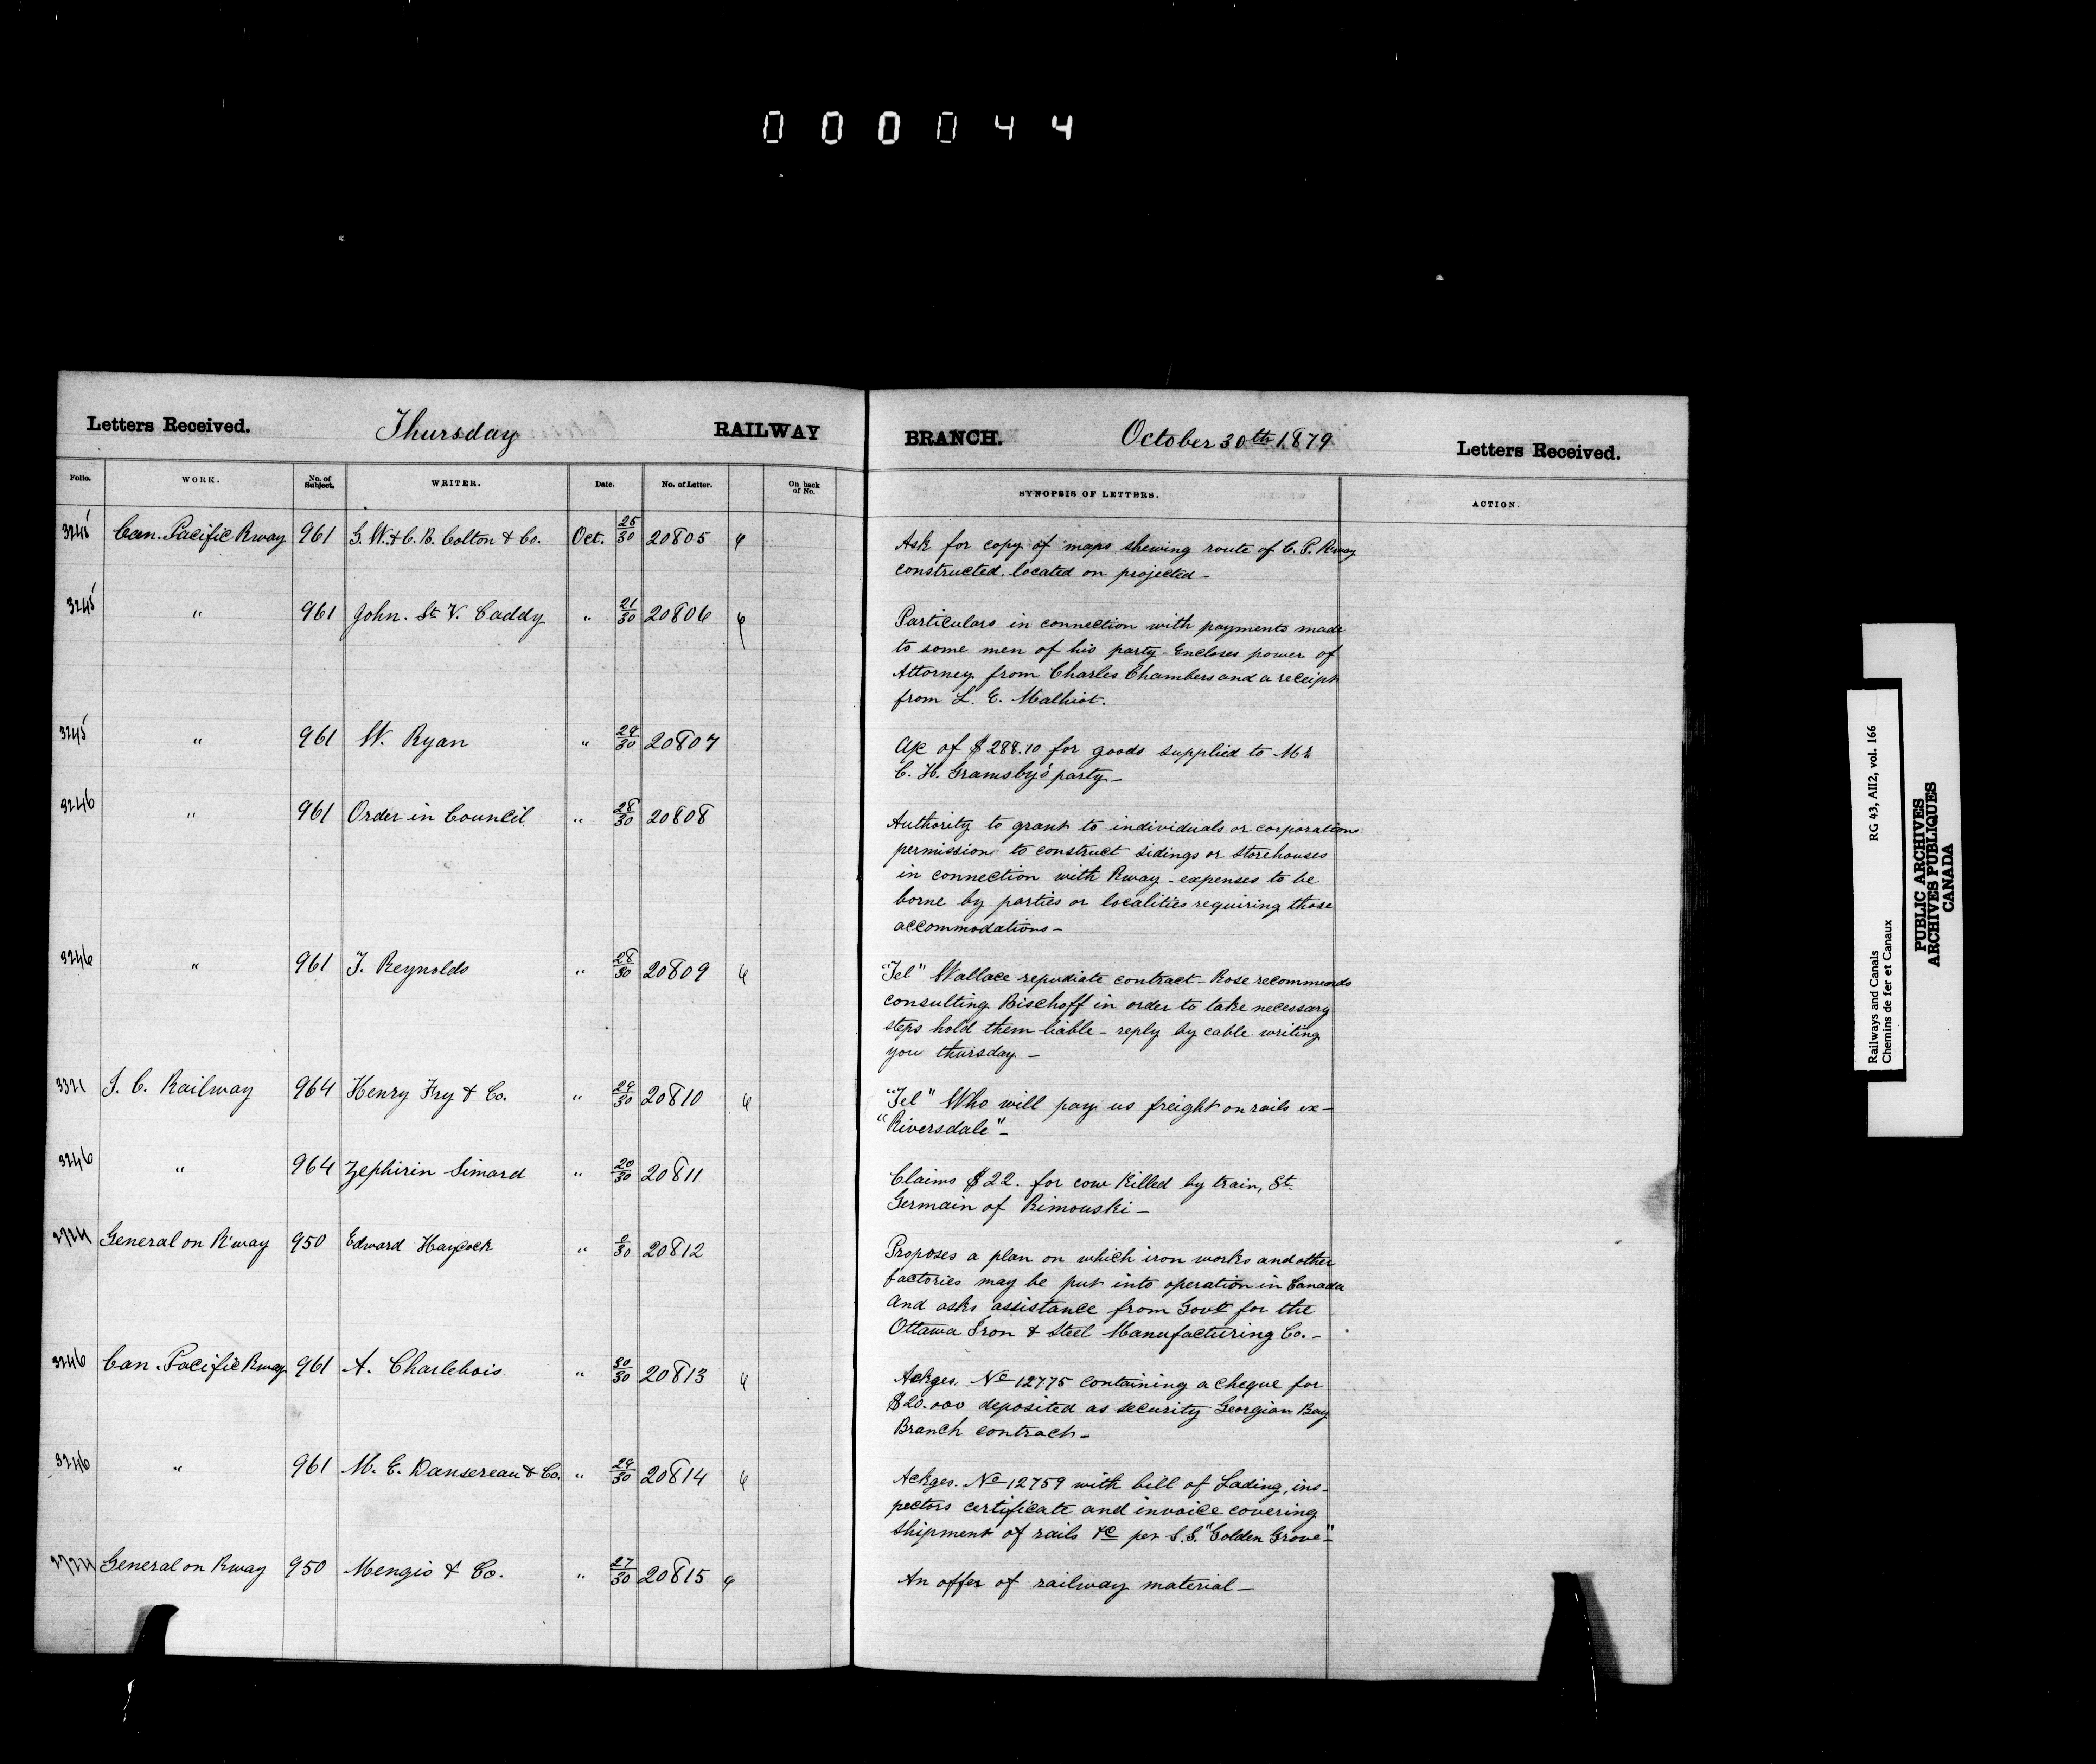 000044
Letters Received. Thursday RAILWAY BRANCH. October 30th 1879 Letters Received.
Folio. WORK. No. of Subject. WRITER. Date. No. of Letter. On back of No. SYNOPSIS OF LETTERS. ACTION.
3245 Can. Pacific Rway 961 G. W. & C. B. Colton & Co. Oct. 25/30 20805 Ask for copy of maps shewing route of C. P. Rway
constructed, located on projected -
3245 " 961 John. St V. Caddy " 21/30 20806 Particulars in connection with payments made
to some men of his party - Encloses power of
Attorney from Charles Chambers and a receipt
from L. E. Malhiot.
3245 " 961 W. Ryan " 29/30 20807 a/c of $288.10 for goods supplied to Mr
C. H. Gramsby's party -
3246 " 961 Order in Council " 28/30 20808 Authority to grant to individuals or corporations
permission to construct sidings or storehouses
in connection with Rway - expenses to be
borne by parties or localities requiring those
accommodations -
3246 " 961 T. Reynolds " 28/30 20809 "Tel" Wallace repudiate contract - Rose recommends
consulting Bischoff in order to take necessary
steps hold them liable - reply by cable writing
you thursday -
3321 I. C. Railway 964 Henry Fry & Co. " 29/30 20810 "Tel" Who will pay us freight on rails ex-
"Riversdale" -
3246 " 964 Zephirin Simard " 20/30 20811 Claims $22. for cow killed by train, St.
Germain of Rimouski -
General on R'way 950 Edward Haycock " 0/30 20812 Proposes a plan on which iron works and other
factories may be put into operation in Canada
and asks assistance from Govt for the
Ottawa Iron & Steel Manufacturing Co. -
3246 Can. Pacific Rway 961 A. Charlebois " 30/30 20813 Ackges. No 12775 containing a cheque for
$20.000 deposited as security Georgian Bay
Branch contract -
3246 " 961 M. E. Dansereau & Co. " 29/30 20814 Ackges. No 12759 with bill of Lading, ins-
pectors certificate and invoice covering
shipment of rails &c per S.S. "Golden Grove" -
General on Rway 950 Mengis & Co. " 27/30 20815 An offer of railway material -
Railways and Canals RG 43, AII2, vol. 166
Chemins de fer et Canaux
PUBLIC ARCHIVES
ARCHIVES PUBLIQUES
CANADA